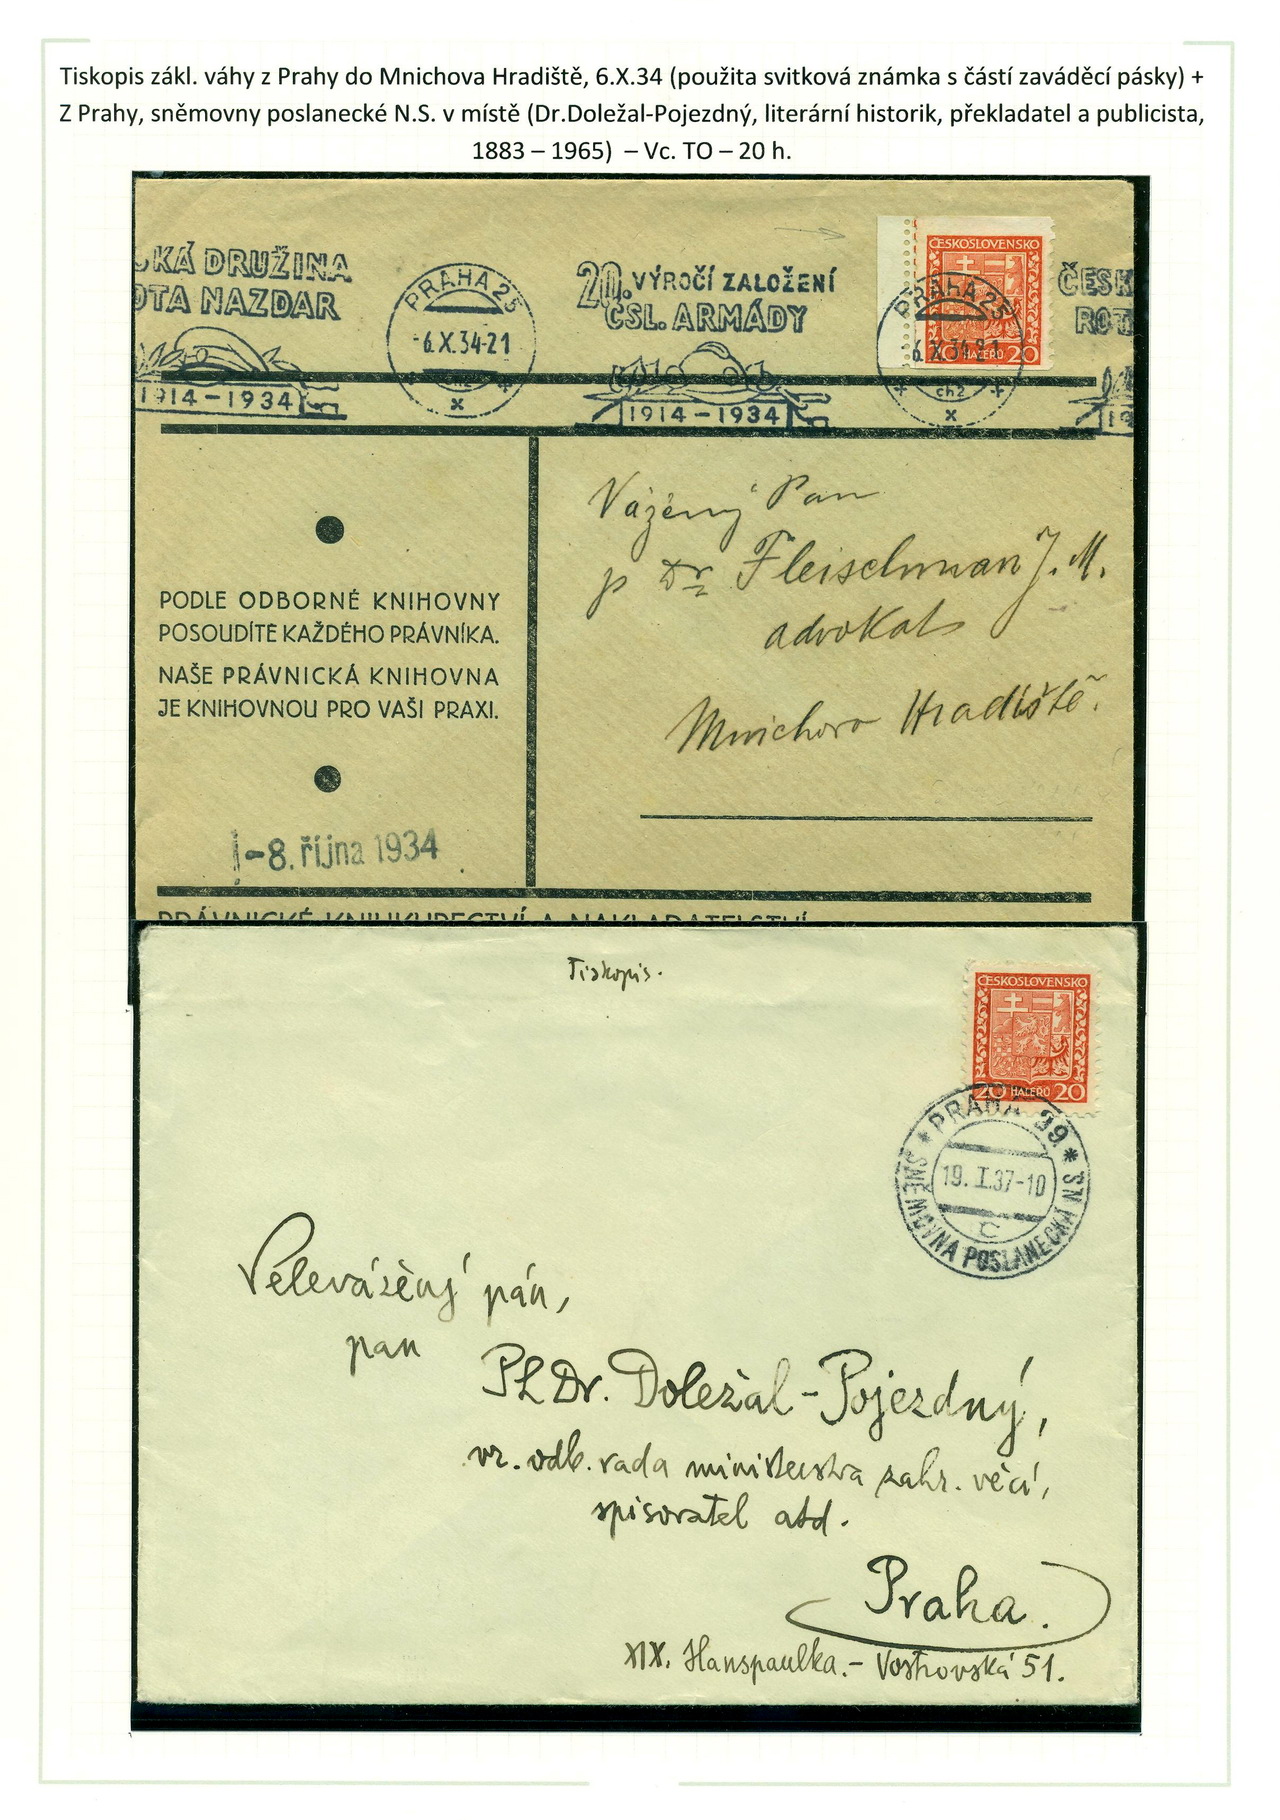 Tiskopis zákl. váhy z Prahy do Mnichova Hradiště, 6.X.34 (použita svitková známka s částí zaváděcí pásky) +
Z Prahy, sněmovny poslanecké N.S. v místě (Dr.Doležal-Pojezdný, literární historik, překladatel a publicista,
1883 – 1965)  – Vc. TO – 20 h.
SKÁ DRUŽINA
OTA NAZDAR
1914-1934
PRAHA 25
-6.X.34-21
ch2
x
20. VÝROČÍ ZALOŽENÍ
ČSL. ARMÁDY
1914-1934
ČESKOSLOVENSKO
20 HALÉŘŮ 20
PRAHA 25
6.X.34-21
ch2
x
ČESK
ROT
19
Vážený Pan
p Dr Fleischman J. M.
advokat
Mnichovo Hradiště.
PODLE ODBORNÉ KNIHOVNY
POSOUDÍTE KAŽDÉHO PRÁVNÍKA.
NAŠE PRÁVNICKÁ KNIHOVNA
JE KNIHOVNOU PRO VAŠI PRAXI.
-8. října 1934
PRÁVNICKÉ KNIHKUPECTVÍ A NAKLADATELSTVÍ
Tiskopis.
ČESKOSLOVENSKO
20 HALÉŘŮ 20
* PRAHA 99 *
19. I.37-10
C
SNĚMOVNA POSLANECKÁ NS
Velevážený pán,
pan
PhDr. Doležal-Pojezdný,
vr. odb. rada ministerstva zahr. věcí,
spisovatel atd.
Praha.
XIX. Hanspaulka.- Vostrovská 51.